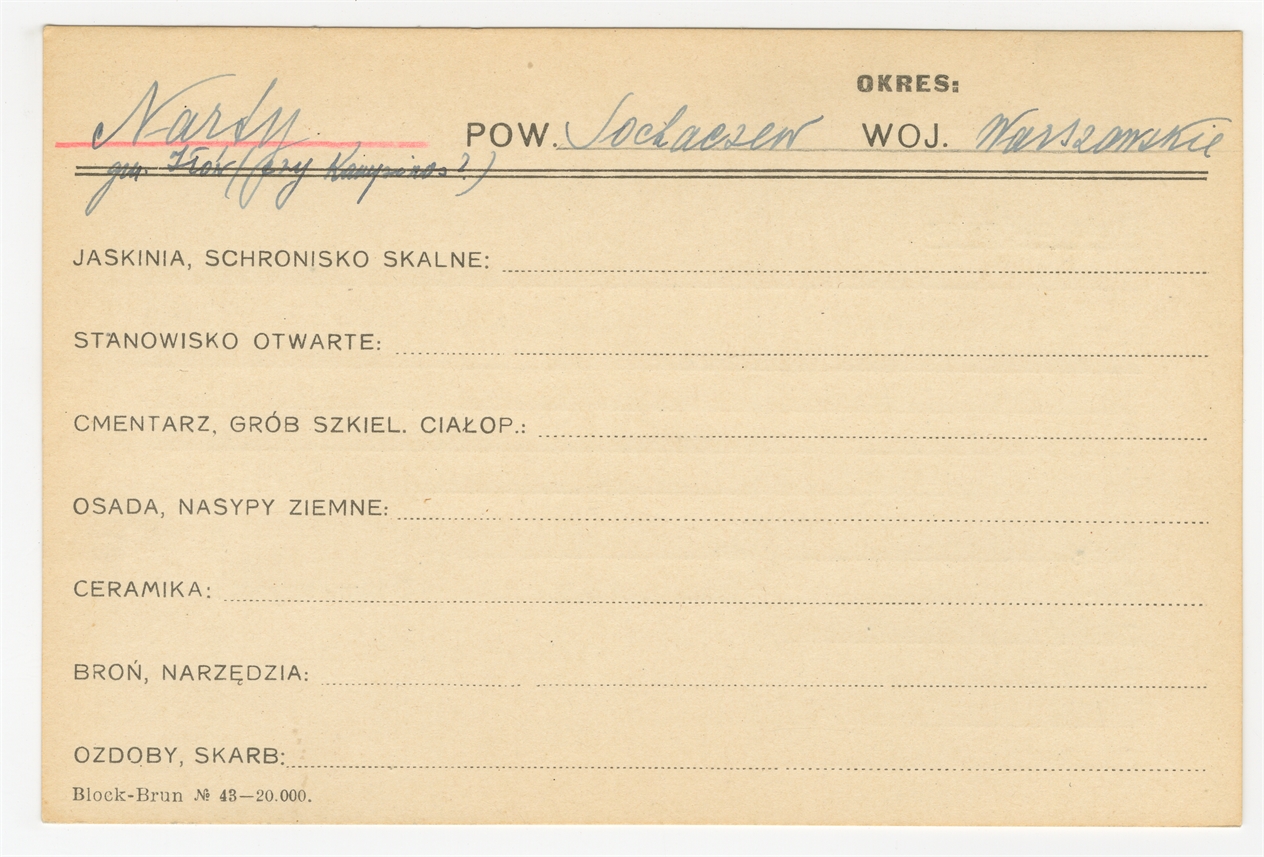 OKRES:
Narty POW. Sochaczew WOJ. Warszawskie
gm. Iłów (czy Kampinos?)
JASKINIA, SCHRONISKO SKALNE:
STANOWISKO OTWARTE:
CMENTARZ, GRÓB SZKIEL. CIAŁOP.:
OSADA, NASYPY ZIEMNE:
CERAMIKA:
BROŃ, NARZĘDZIA:
OZDOBY, SKARB:
Block-Brun № 43—20.000.